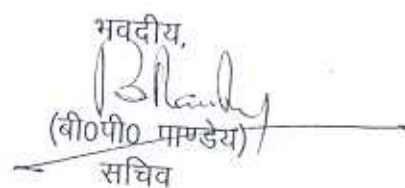 भवदीय,
(बी0पी0 पाण्डेय)
सचिव